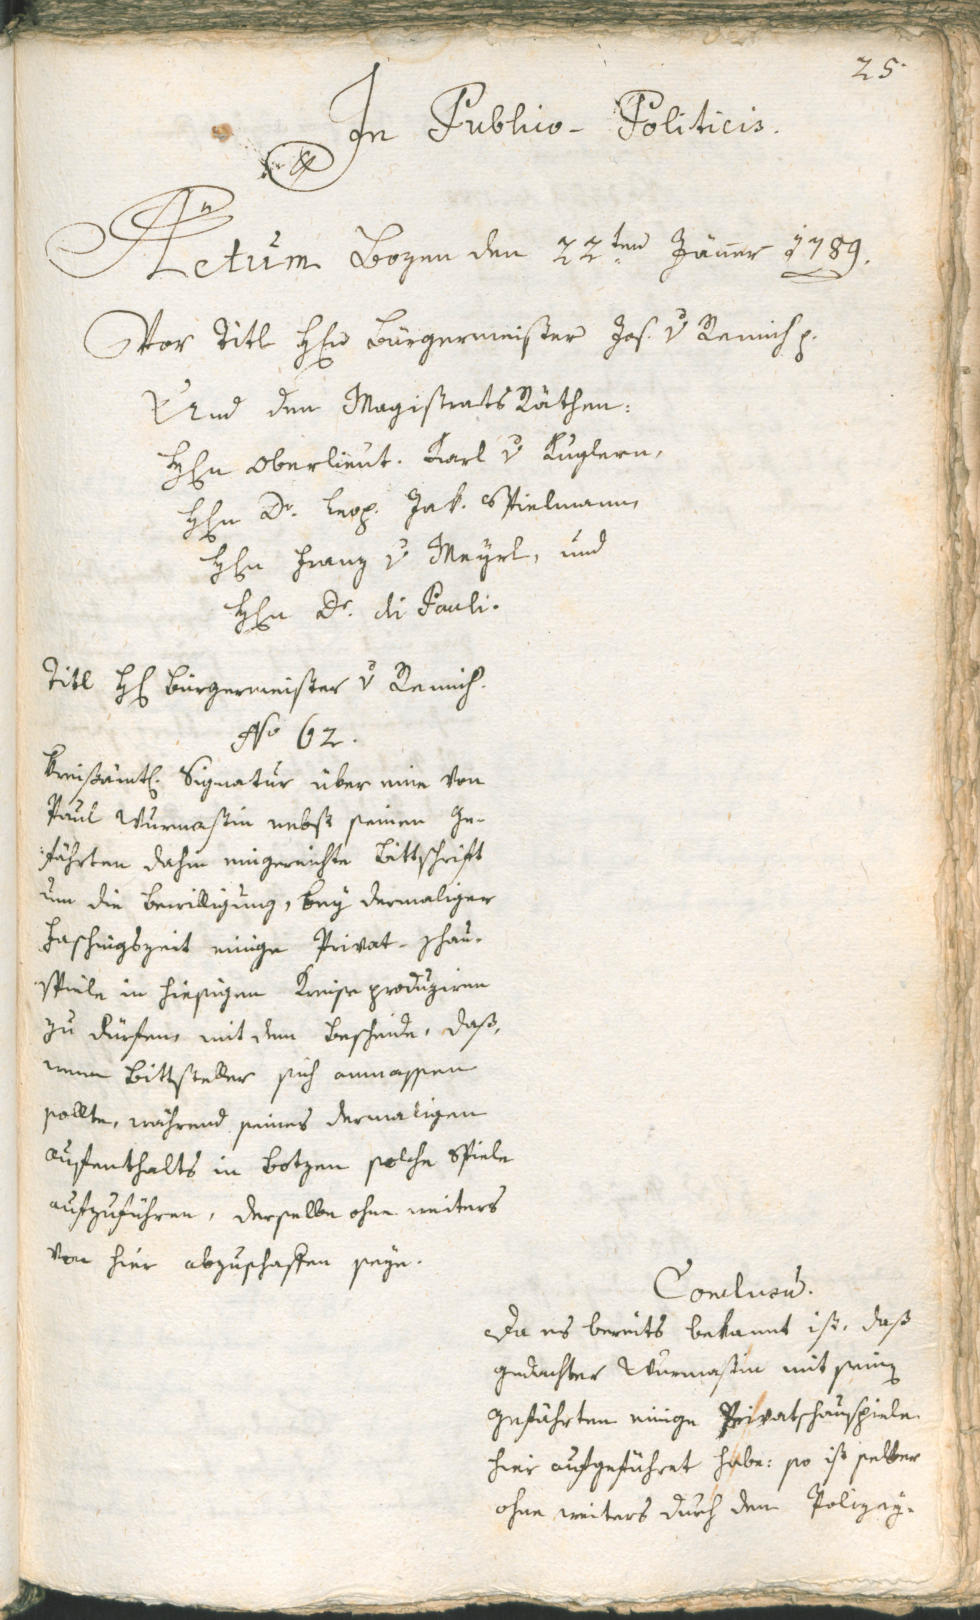 25.
In Publico-Politicis.
Actum Bozen den 22ten Jänner 1789.
Vor Titl Hhn Bürgermeister Jos. v Remich p.
Und den Magistrats Räthen:
Hhn Oberlieut. Karl v Kuglern,
Hhn Dr. Leop. Jak. Spielmann,
Hhn Franz v Meyrl, und
Hhn Dr. di Pauli.
Titl Hh Bürgermeister v Remich.
No 62.
Kreisämtl. Signatur über eine von
Paul Wurmastin nebst seinen Ge-
fährten dahin eingereichte Bittschrift
um die Bewilligung, bey dermaliger
Faschingszeit einige Privat-Schau-
spiele in hiesigem Kreise produziren
zu därfen, mit dem Bescheide, daß,
wenn Bittsteller sich anmassen
sollte, während seines dermaligen
Aufenthalts in Botzen solche Spiele
aufzuführen, derselbe ohne weiters
von hier abzuschaffen seye.
Conclusũ.
Da es bereits bekannt ist, daß
gedachter Wurmastin mit seinen
Gefährten einige Privatschauspiele
hier aufgeführet habe: so ist selber
ohne weiters durch den Polizey-